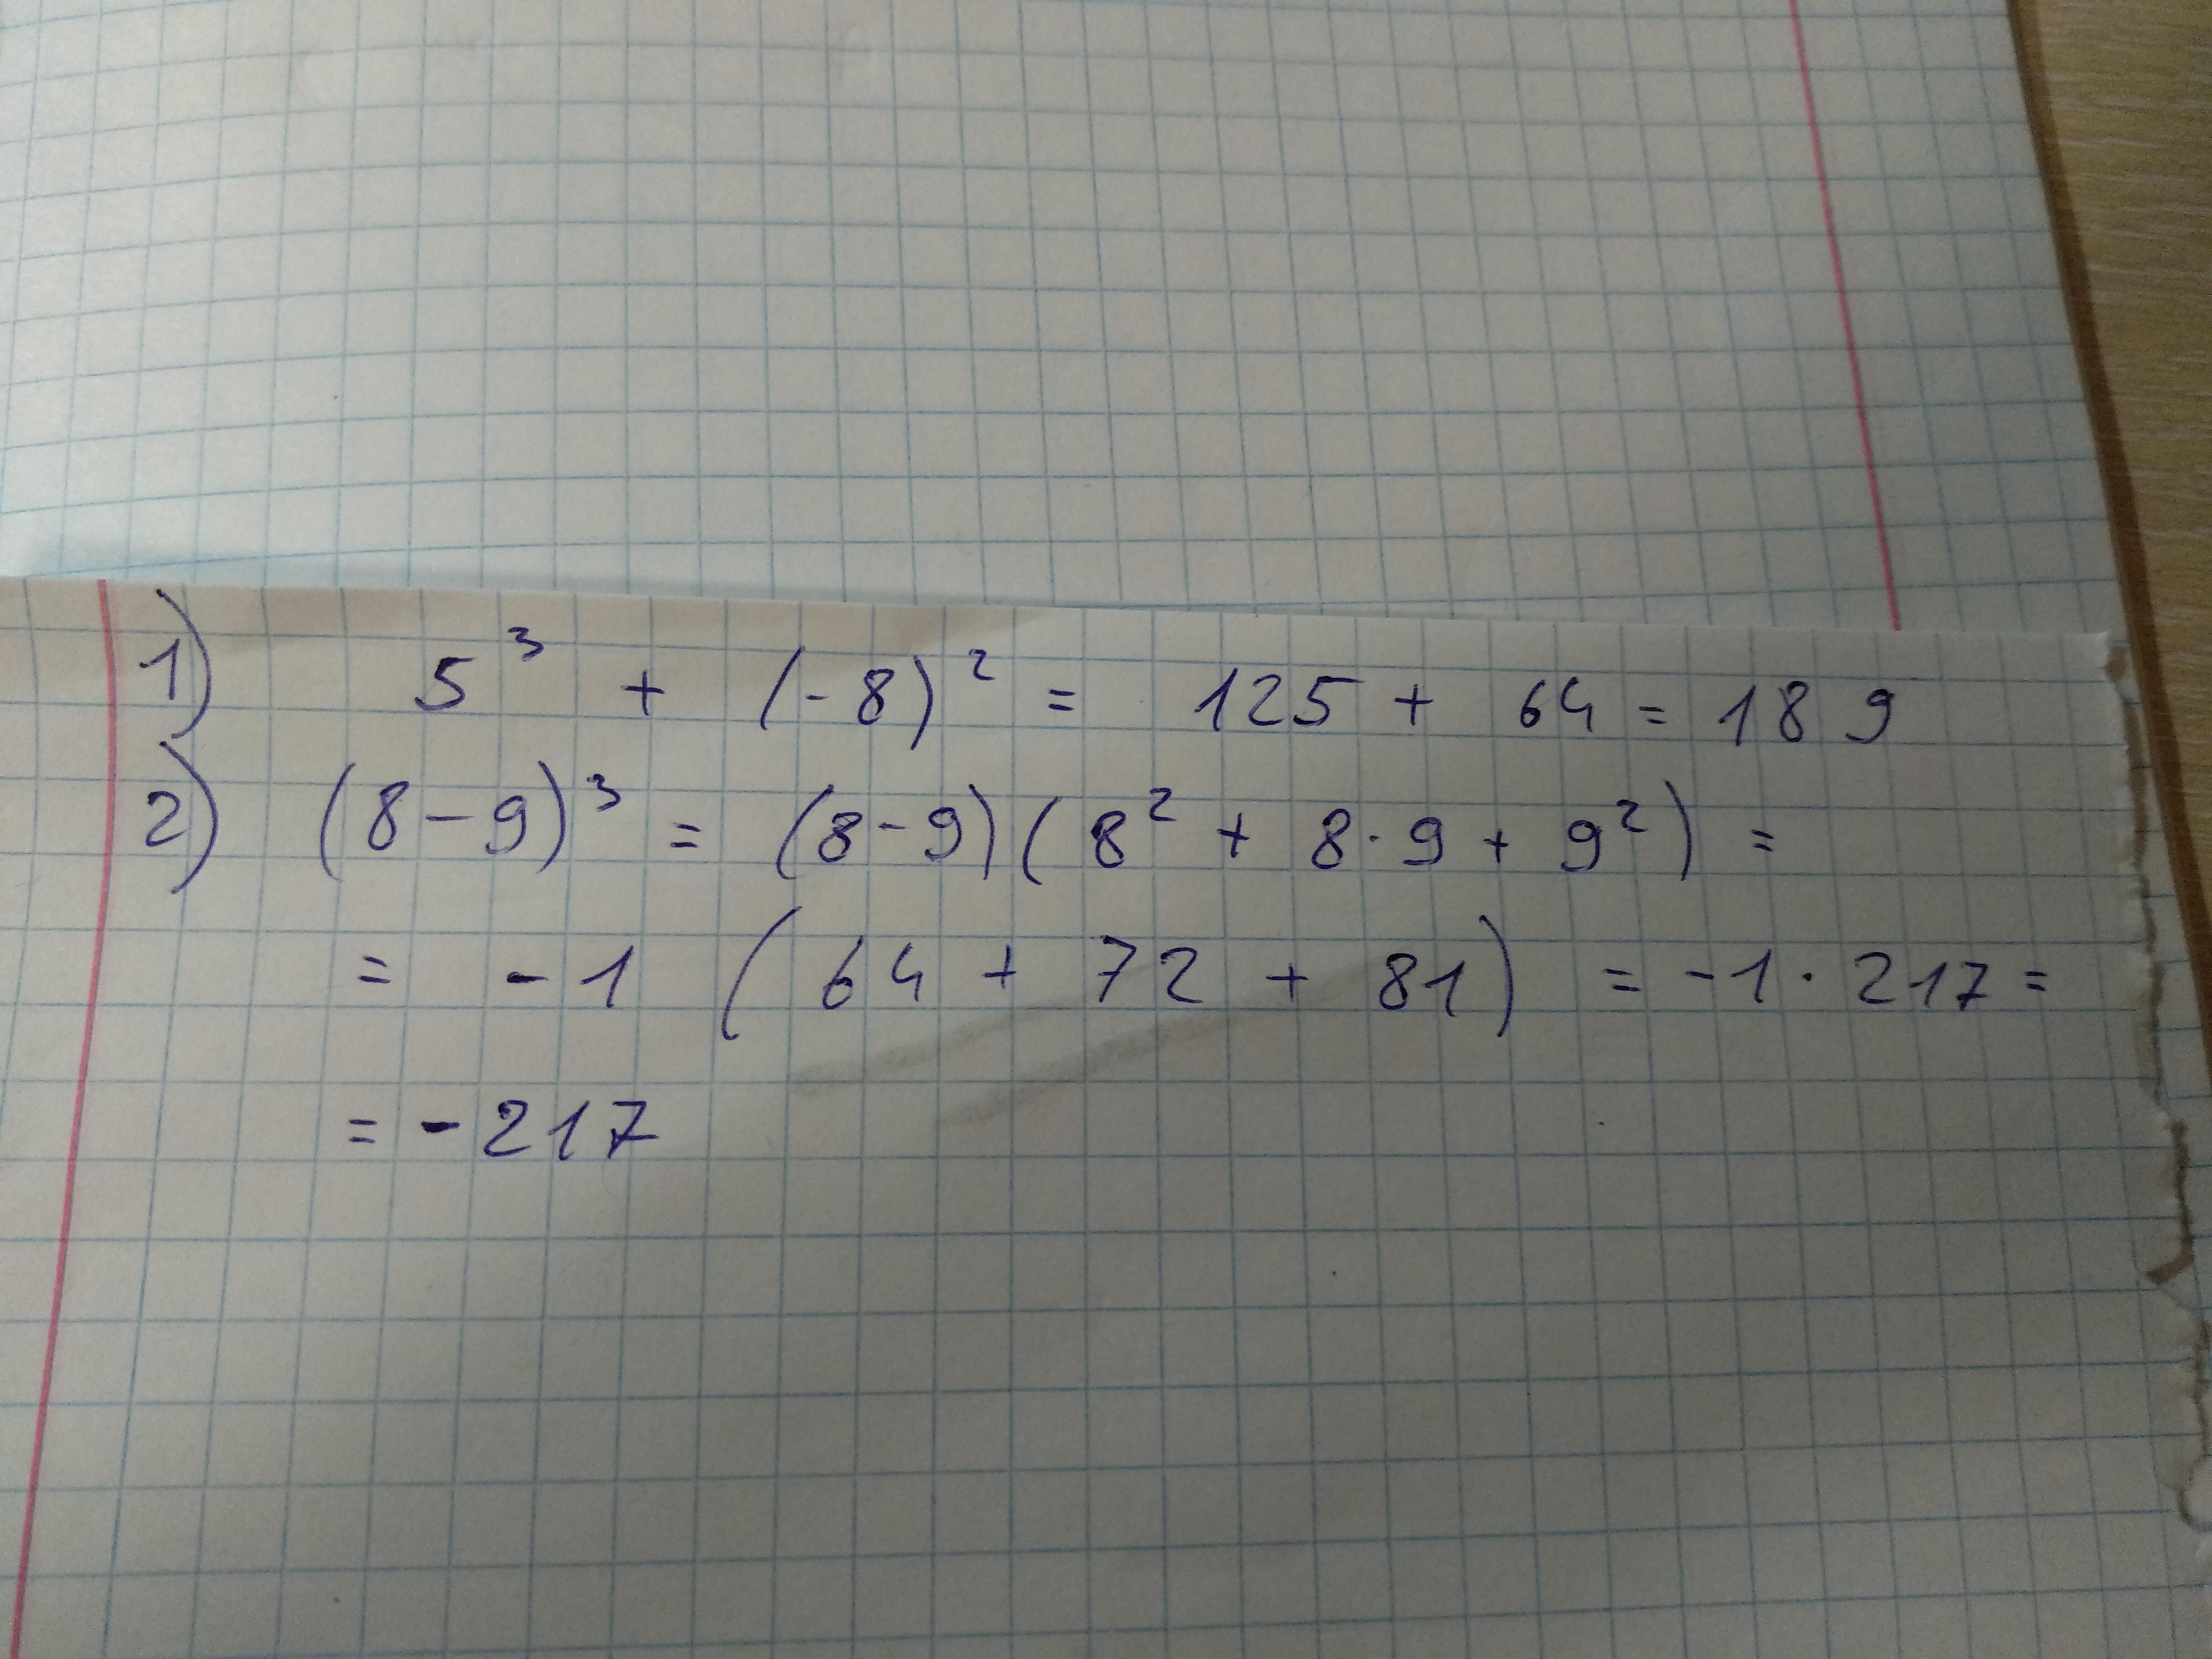 1) 5³ + (-8)² = 125 + 64 = 189
2) (8-9)³ = (8-9)(8² + 8·9 + 9²) =
= -1 (64 + 72 + 81) = -1·217 =
= -217